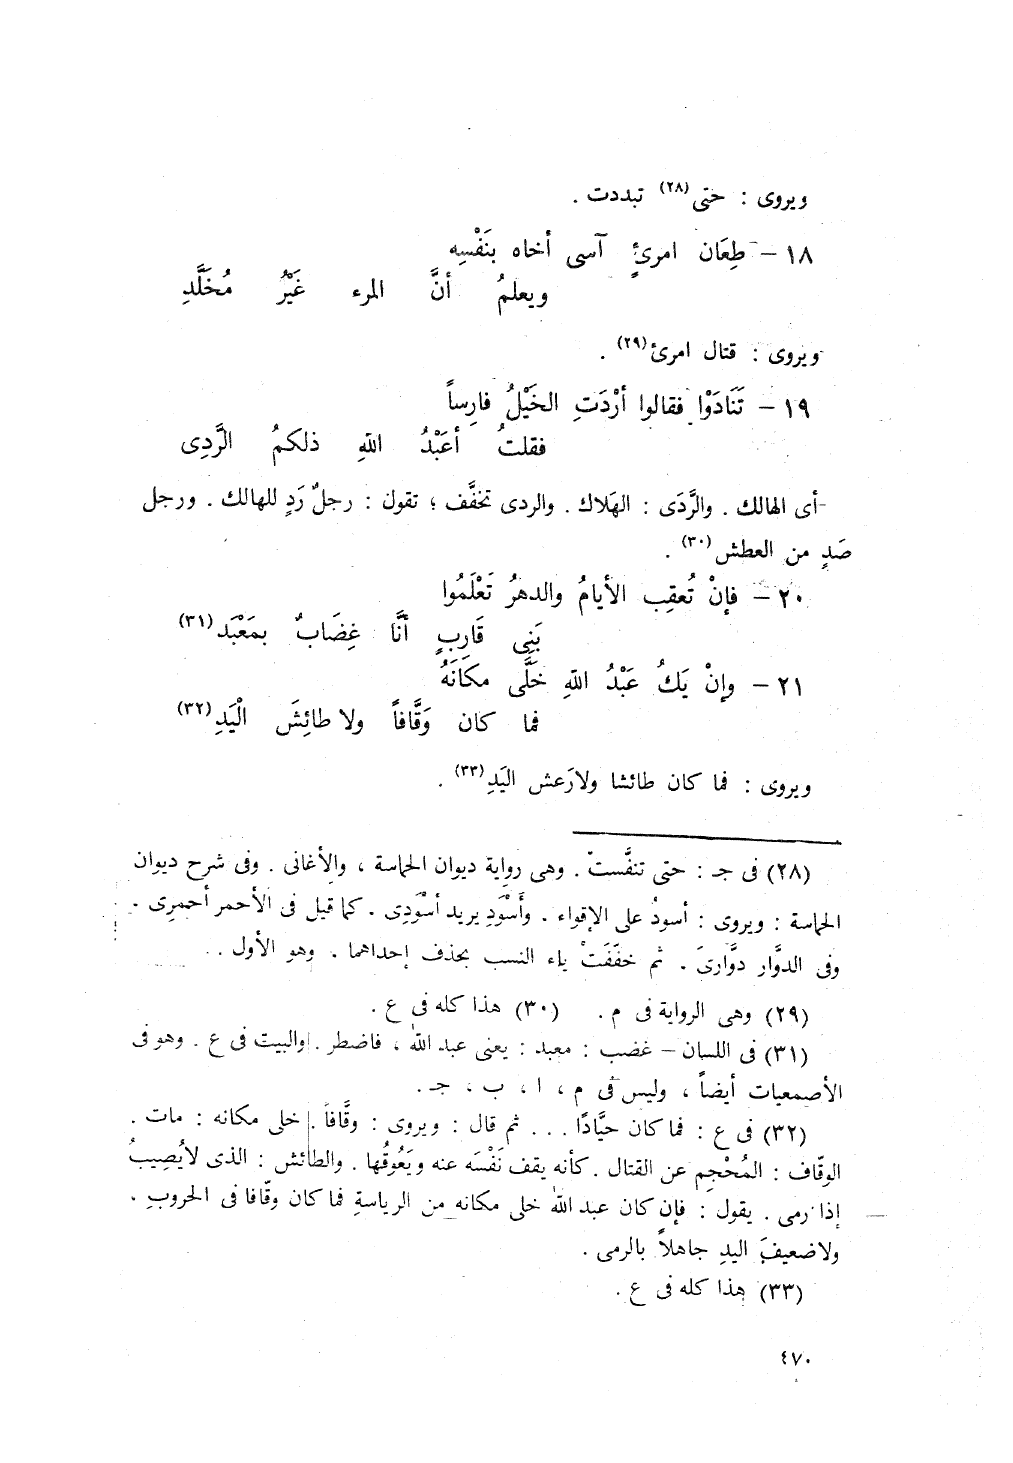 ويروى : حتى (٢٨) تبددت .
١٨ – طِعَان امرئٍ آسى أخاه بنَفْسِه
ويعلمُ أنَّ المرء غَيْرُ مُخَلَّدِ
ويروى : قتال امرئ (٢٩) .
١٩ – تَنَادَوْا فقالوا أرْدَتِ الخَيْلُ فارِساً
فقلتُ أعَبْدُ اللهِ ذلكمُ الرَّدِى
أى الهالك . والرَّدَى : الهَلاك . والردى تخفَّف ؛ تقول : رجلٌ رَدٍ للهالك . ورجل
صَدٍ من العطش (٣٠) .
٢٠ – فإنْ تُعقِب الأيامُ والدهرُ تَعْلَمُوا
بَنِى قَارِبٍ أنَّا غِضَابٌ بمَعْبَد (٣١)
٢١ – وإنْ يَكُ عَبْدُ اللهِ خَلَّى مكَانَهُ
فما كان وَقَّافاً ولا طائِشَ الْيَدِ (٣٢)
ويروى : فما كان طائشا ولارَعش اليَدِ (٣٣) .
(٢٨) فى جـ : حتى تنفَّست . وهى رواية ديوان الحماسة ، والأغانى . وفى شرح ديوان
الحماسة : ويروى : أسودُ على الإقواء . وأَسْوَدِ يريد أسْوَدِى . كما قيل فى الأحمر أحمرِى .
وفى الدوَّار دوَّارىَ . ثم خفّفَتْ ياء النسب بحذف إحداهما . وهو الأول .
(٢٩) وهى الرواية فى م . (٣٠) هذا كله فى ع .
(٣١) فى اللسان – غضب : معبد : يعنى عبد الله ، فاضطر . والبيت فى ع . وهو فى
الأصمعيات أيضاً ، وليس فى م ، ا ، ب ، جـ .
(٣٢) فى ع : فما كان حيَّادًا . . . ثم قال : ويروى : وقَّافاً . خلى مكانه : مات .
الوقّاف : المُحْجِم عن القتال . كأنه يقف نَفْسَه عنه ويَعُوقُها . والطائش : الذى لايُصِيبُ
إذا رمى . يقول : فإن كان عبد الله خلى مكانه من الرياسةِ فما كان وقّافا فى الحروبِ .
ولا ضعيفَ اليدِ جاهلاً بالرمى .
(٣٣) هذا كله فى ع .
٤٧٠